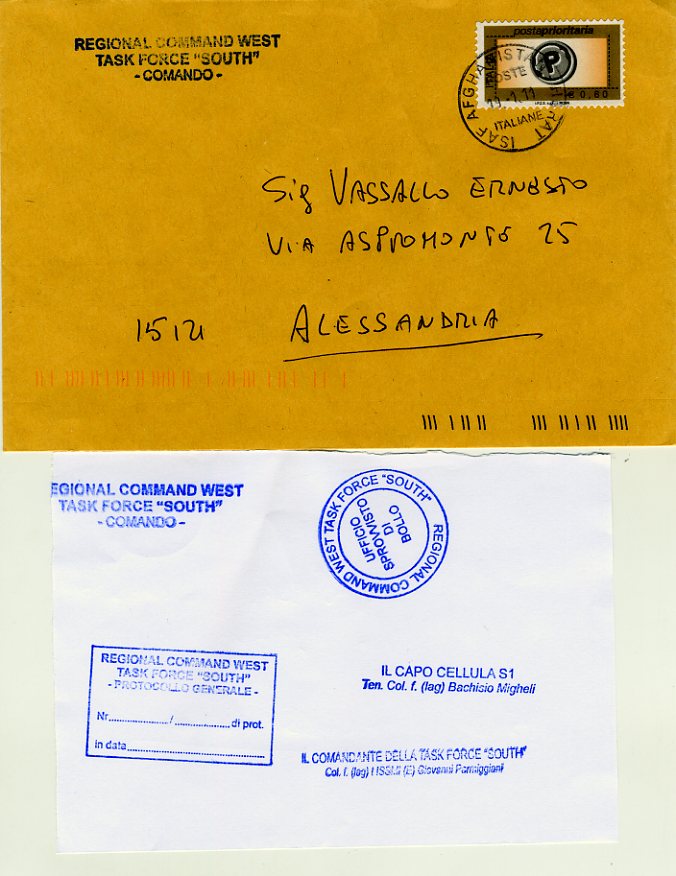 REGIONAL COMMAND WEST
TASK FORCE "SOUTH"
- COMANDO -
postaprioritaria
P
€ 0,60
ISAF AFGHANISTAN HERAT
POSTE
19-1-11
ITALIANE
Sig VASSALLO ERNESTO
VIA ASPROMONTE 25
15121 ALESSANDRIA
EGIONAL COMMAND WEST
TASK FORCE "SOUTH"
- COMANDO -
REGIONAL COMMAND WEST TASK FORCE "SOUTH"
UFFICIO
SPROVVISTO
DI
BOLLO
REGIONAL COMMAND WEST
TASK FORCE "SOUTH"
- PROTOCOLLO GENERALE -
Nr..................../....................di prot.
in data........................................
IL CAPO CELLULA S1
Ten. Col. f. (lag) Bachisio Migheli
IL COMANDANTE DELLA TASK FORCE "SOUTH"
Col. f. (lag) t ISSMI (E) Giovanni Parmiggiani